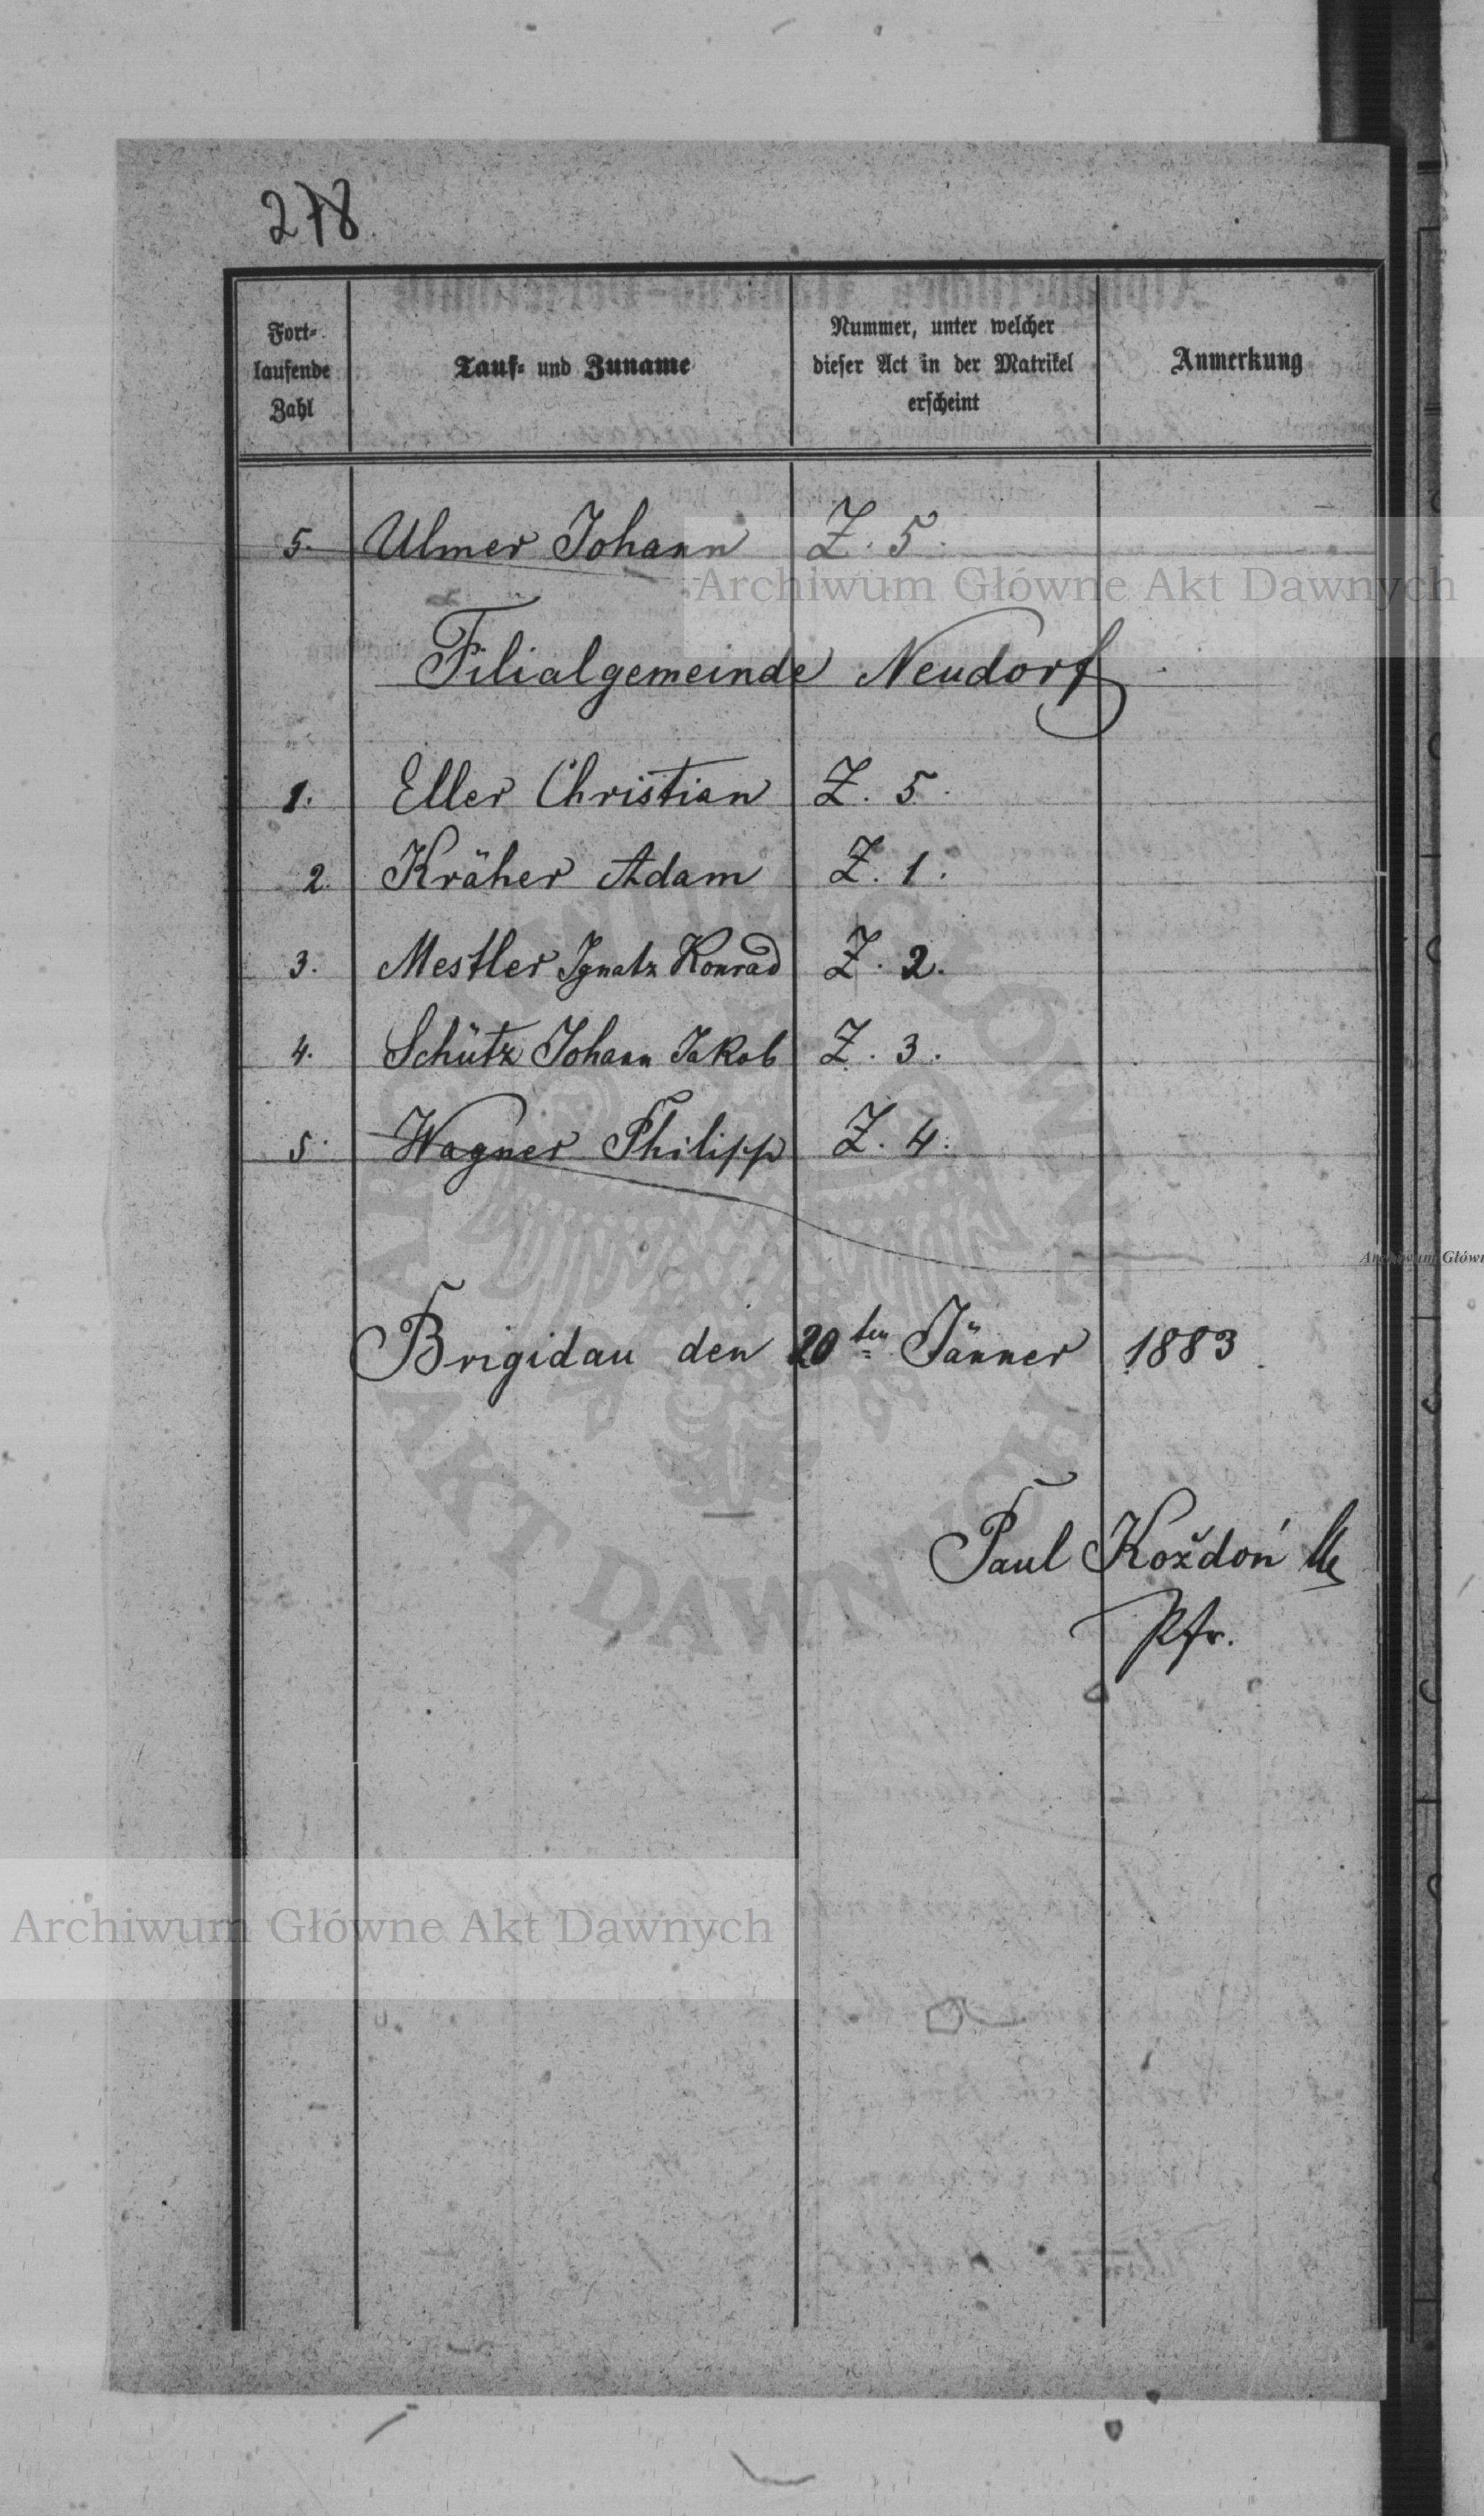 278
Fort-
laufende
Zahl
Tauf- und Zuname
Nummer, unter welcher
dieser Act in der Matrikel
erscheint
Anmerkung
5. Ulmer Johann Z. 5.
Archiwum Główne Akt Dawnych
Filialgemeinde Neudorf
1. Eller Christian Z. 5.
2. Kräher Adam Z. 1.
3. Mestler Ignatz Konrad Z. 2.
4. Schütz Johann Jakob Z. 3.
5. Wagner Philipp Z. 4.
Brigidau den 20ten Jänner 1883.
Paul Koždoń
Pfr.
ARCHIWUM GŁÓWNE
AKT DAWNYCH
Archiwum Główne Akt Dawnych